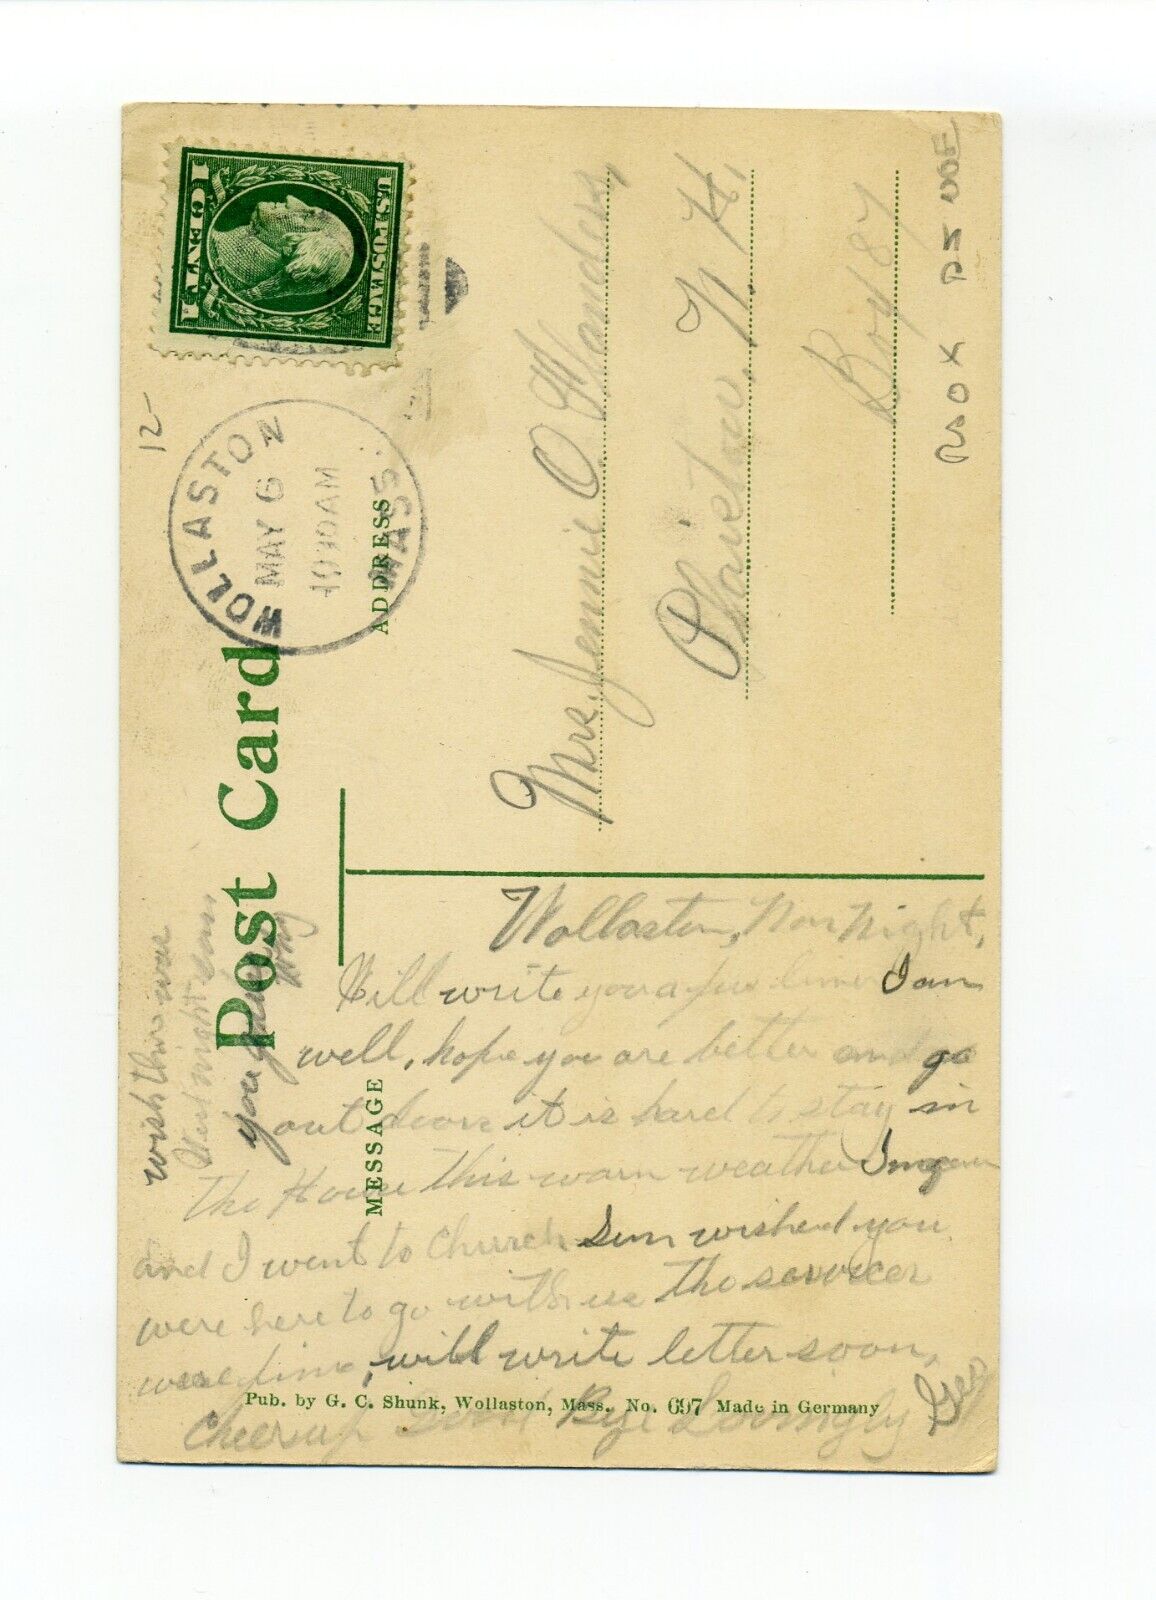 Post Card
MESSAGE
ADDRESS
U.S. POSTAGE
1 ONE CENT 1
WOLLASTON
MAY 6
1030AM
MASS.
12-
Mrs. Jennie O. Flanders,
N. H.
Box 87
BOX
Wollaston, Mon Night,
Will write you a few lines I am
well, hope you are better and go
out doors it is hard to stay in
the House this warm weather
and I went to Church Sun wished you
were here to go with us the services
were fine, will write letter soon,
Cheer up Good Bye Lovingly
wish this was
you
Pub. by G. C. Shunk, Wollaston, Mass. No. 697 Made in Germany